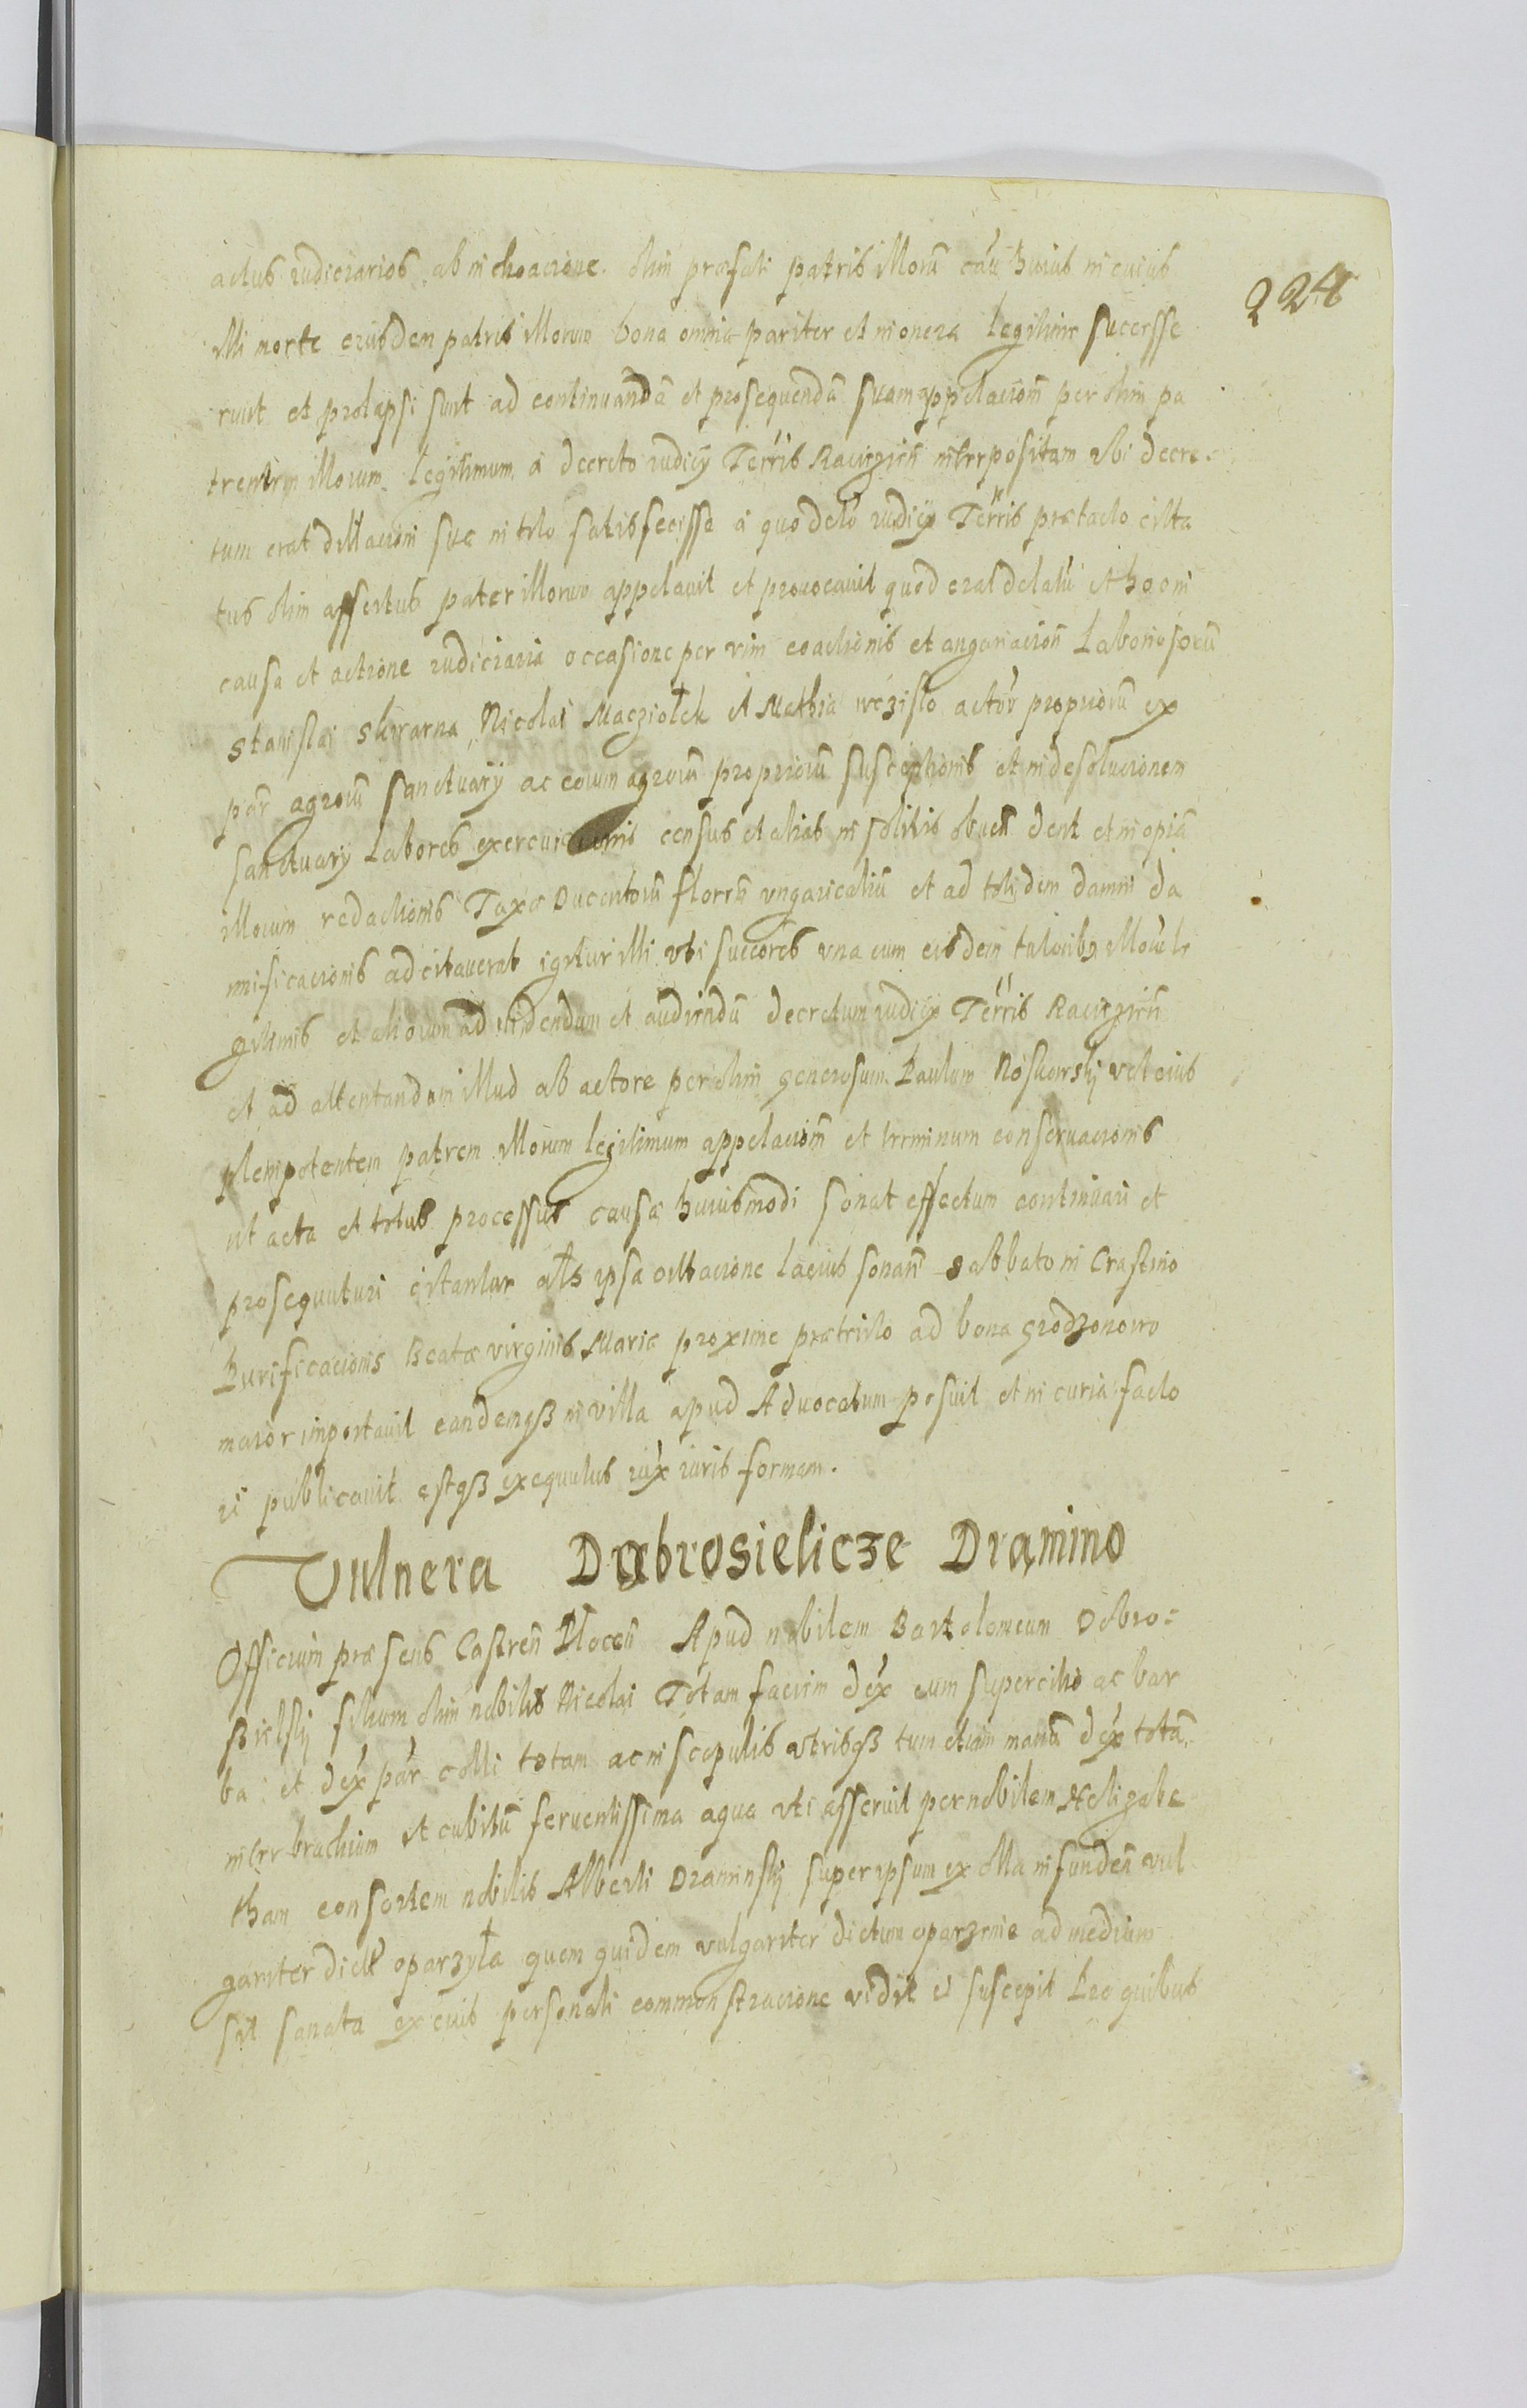 actus iudiciarios ab inchoacione olim præfati patris illorũ caũ huius in cuius
224
illi morte eiusdem patris illorum bona omnia pariter et in onera legitime sucesse
runt et prolapsi sunt ad continuandã et prosequendã suam appelacionẽ per olim pa
trem illorum legitimum á decreto iudicÿ Terris Raciązieñ interpositam vbi decre-
tum erat dillacioni suæ in toto satisfecisse á quo delõ iudicÿ Terris prætacto cita
tus olim assertus pater illorum appelauit et prouocauit quod erat delatũ et ho om
causa et actione iudiciaria occasione per vim coactionis et angariacioñ Laboriosorũ
Stanislai Nicolai Macziołek et Mathia actor propriorũ ex
par agrorũ Sanctuarÿ ac eorum agrorũ propriorũ susceptionis et in desolucionem
Sanctuarÿ Labores census et alias in solitis dent et in opiã
illorum redactionis Taxæ Ducentorũ florrũ vngaricaliũ et ad totidem damni da
mnificacionis adcitauerat igitur illi vti succores vna cum eisdem tutoribus illorũ le
gitimis et aliorum ad videndum et audiendũ decretum iudicÿ Terris Raciązieñ
et ad attentandam illud ab actore per olim generosum Paulum Noskowskÿ vt eius
plenipotentem patrem illorum legitimum appelacionẽ et terminum conseruacionis
ut acta et totus processus causæ huiusmodi sonat effectum continuari et
prosequuturi citantur als ipsa cittacione lacius sonañ Sabbato in Crastino
Purificacionis Beatæ virginis Mariæ proxime præterito ad bona Grodzonowo
maior importauit eandemqß in villa apud Aduocatum posuit et in curia facto
re publicauit estqß exequutus iux iuris formam.
Vulnera Dobrosielicze Dramino
Officium præsens Castreñ Ploceñ Apud nobilem Bartolomeum Dobro=
sielskÿ filium olim nobilis Nicolai Totam faciem dex cum supercilio ac bar
ba et dex par colli totam ac in scapulis vtrisqß tum etiam manũ dex totã
inter brachium et cubitũ feruentissima aqua vti asseruit per nobilem Helizabe
tham consortem nobilis Alberti Draminskÿ super ipsum ex olla infundeñ vul
gariter dict oparzyła quem quidem vulgariter dictum oparzenie ad medium
sit sanata ex cuius personali commonstracione vidit et suscepit Pro quibus